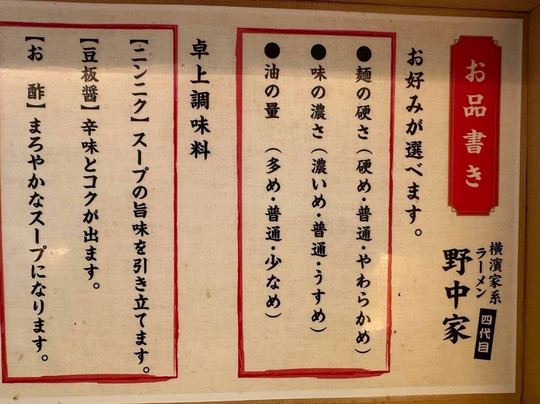 お品書き
横濱家系
ラーメン
野中家
四代目
お好みが選べます。
●麺の硬さ（硬め・普通・やわらかめ）
●味の濃さ（濃いめ・普通・うすめ）
●油の量（多め・普通・少なめ）
卓上調味料
【ニンニク】スープの旨味を引き立てます。
【豆板醤】辛味とコクが出ます。
【お酢】まろやかなスープになります。